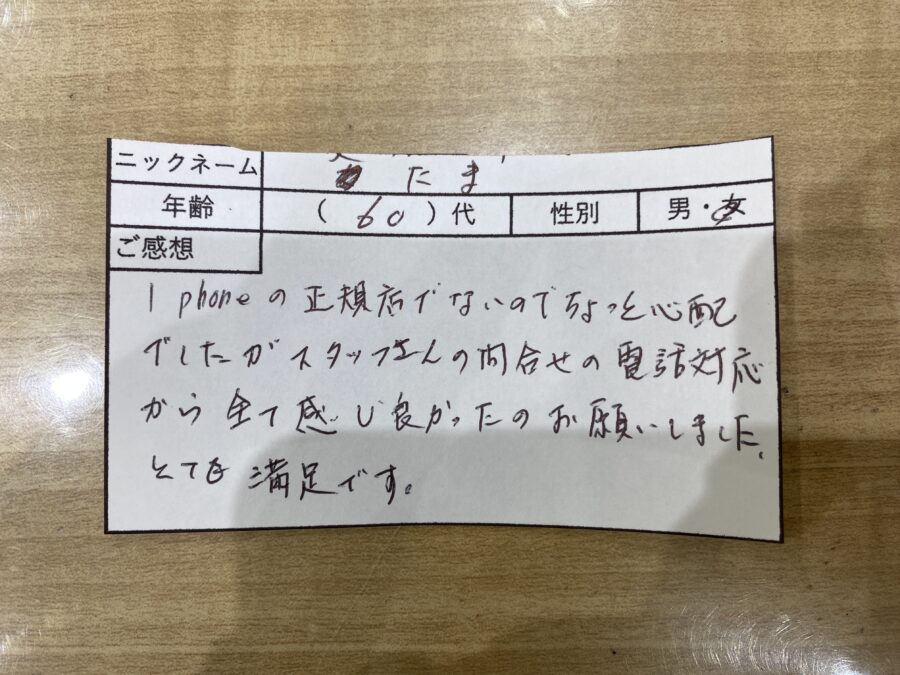 ニックネーム たま
年齢 (60)代 性別 男・女
ご感想
I phoneの正規店でないのでちょっと心配
でしたがスタッフさんの問合せの電話対応
から全て感じ良かったのお願いしました。
とても満足です。